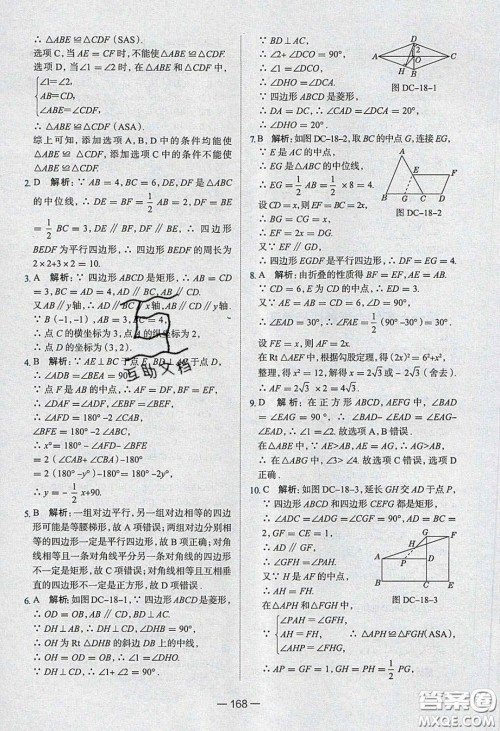 ∴ △ABE ≌ △CDF (SAS).
选项 C,当 AE = CF 时,不能使
△ABE ≌ △CDF.
选项 D,当 ∠1 = ∠2 时,在
△ABE 和 △CDF 中,
∠1=∠2,
AB=CD,
∠ABE=∠CDF,
∴ △ABE ≌ △CDF (ASA).
综上可知,添加选项 A,B,D 中的条件均能使
△ABE ≌ △CDF.
2. D 解析:∵ AB = 4,BC = 6,DE,DF 是 △ABC
的中位线,∴ DE = BF = 1/2 AB = 2,DF = BE =
1/2 BC = 3,DE∥BF,DF∥BE,∴ 四边形
BEDF 为平行四边形,∴ 四边形 BEDF 的周长为
2×2+3×2 = 10.
3. A 解析:∵ 四边形 ABCD 是矩形,∴ AB = CD
= 3,AB∥CD,AD = BC = 4,AD∥BC.
又∵ AB∥y 轴,∴ AD∥BC∥x 轴,AB∥CD∥y 轴.
∵ B(-1,-1),AB=3,BC=4,
∴ 点 C 的横坐标为 3,点 A 的纵坐标为 2,
∴ 点 D 的坐标为 (3,2).
4. B 解析:∵ AE⊥BC 于点 E,BD⊥AC 于点 D,
∴ ∠ADB = ∠BEA = 90°.
∵ 点 F 是 AB 的中点,∴ AF = DF,BF = EF,
∴ ∠DAF = ∠ADF,∠EBF = ∠BEF,
∴ ∠AFD = 180°-2∠CAB,
∠BFE = 180°-2∠ABC,
∴ x°= 180°-∠AFD-∠BFE
= 2 (∠CAB+∠CBA)-180°
= 2 (180°-y°)-180° = 180°-2y°,
∴ y = - 1/2 x+90.
5. B 解析:一组对边平行,另一组对边相等的四边
形可能是等腰梯形,故 A 项错误;两组对边分别相
等的四边形是平行四边形,故 B 项正确;对角
线相等且一条对角线平分另一条对角线的四边
形不一定是矩形,故 C 项错误;对角线相等且互相垂
直的四边形不一定是正方形,故 D 项错误.
6. A 解析:如图 DC-18-1,∵ 四边形 ABCD 是菱形,
∴ OD = OB,AB∥CD,BD⊥AC.
∵ DH⊥AB,∴ DH⊥CD,∠DHB = 90°,
∴ OH 为 Rt △DHB 的斜边 DB 上的中线,
∴ OH = OD = OB,∴ ∠1 = ∠DHO.
∵ DH⊥CD,∴ ∠1+ ∠2 = 90°.
∵ BD⊥AC,
∴ ∠2+ ∠DCO = 90°,
∴ ∠1 = ∠DCO,
∴ ∠DHO = ∠DCA.
∵ 四边形 ABCD 是菱形,
图 DC-18-1
∴ DA = DC,∴ ∠CAD = ∠DCA = 20°,
∴ ∠DHO = 20°.
7. B 解析:如图 DC-18-2,取 BC 的中点 G,连接 EG,
∵ E 是 AC 的中点,
∴ EG 是 △ABC 的中位线,
∴ EG = 1/2 AB = 1/2 ×8 = 4.
设 CD = x,则 EF = 2x.
图 DC-18-2
∴ BG = CG = x,
∴ EF = 2x = DG.
∵ EF∥CD,
∴ 四边形 EGDF 是平行四边形,∴ DF = EG = 4.
8. A 解析:由折叠的性质得 BF = EF,AE = AB.
∵ CD = 6,E 为 CD 的中点,∴ ED = 3.
又∵ AE = AB = CD = 6,
∴ ∠EAD = 30°,∴ ∠FAE = 1/2 (90°-30°) = 30°.
设 FE = x,则 AF = 2x.
在 Rt △AEF 中,根据勾股定理,得 (2x)² = 6²+x²,
整理,得 x² = 12,解得 x = 2√3 或 x = -2√3 (舍
去),∴ AF = 2√3 ×2 = 4√3.
9. D 解析:在正方形 ABCD,BEFG 中,∠BAD
= ∠EAG = 90°,∴ ∠BAD + ∠EAD = ∠EAG +
∠EAD,∴ ∠2 = ∠1,故选项 A,B 错误.
在 △ABE 中,∵ AE>AB,AE = AG,∴ AG>AB,
∴ 在 △ABG 中,∠3> ∠4. 故选项 C 错误,选项 D
正确.
10. C 解析:如图 DC-18-3,延长 GH 交 AD 于点 P,
∵ 四边形 ABCD 和四边形 CEFG 都是矩形,
∴ ∠ADC = ∠ADG = ∠CGF = 90°,
AD = BC = 2,
GF = CE = 1,
∴ AD∥GF,
∴ ∠GFH = ∠PAH.
又∵ H 是 AF 的中点,
∴ AH = FH.
图 DC-18-3
在 △APH 和 △FGH 中,
∠PAH = ∠GFH,
∵ AH = FH, ∴ △APH ≌ △FGH (ASA),
∠AHP = ∠FHG,
∴ AP = GF = 1,GH = PH = 1/2 PG,
互助文档
— 168 —
答案圈
MXQE.COM